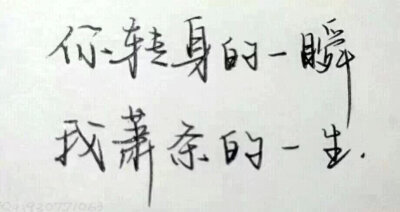 你转身的一瞬
我萧条的一生.